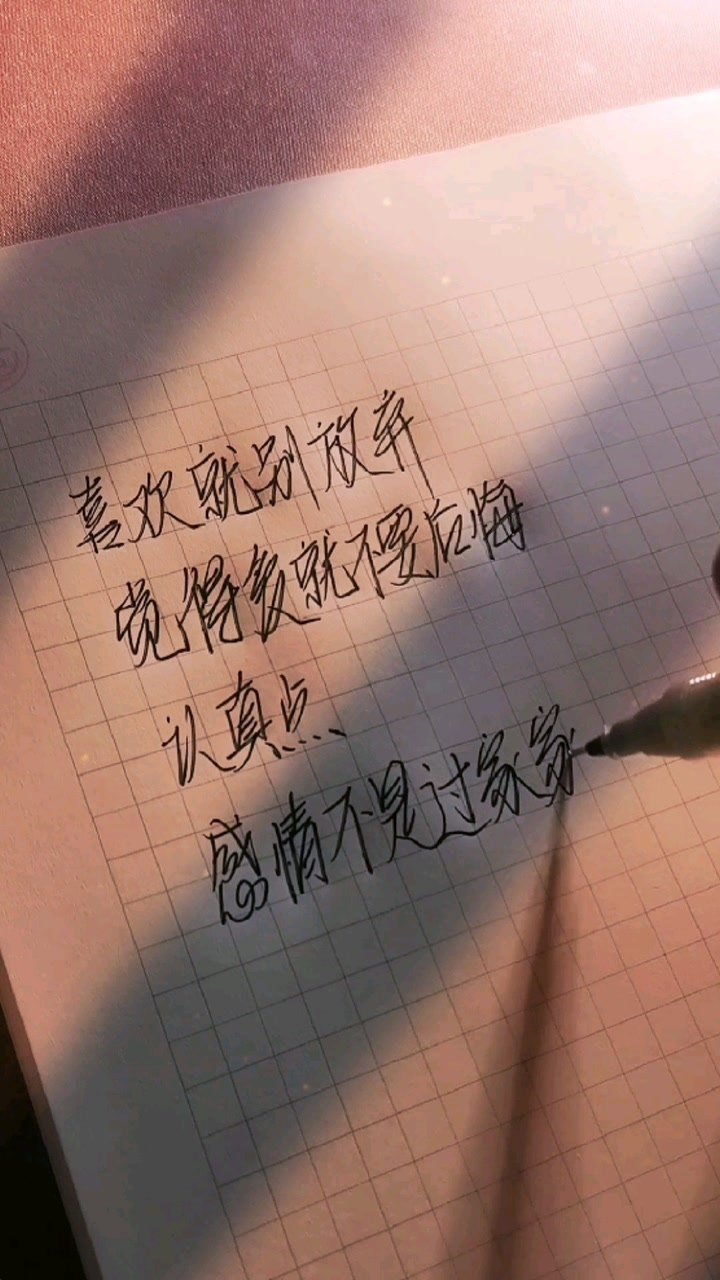 喜欢就别放弃
觉得爱就不要后悔
认真点
感情不是过家家